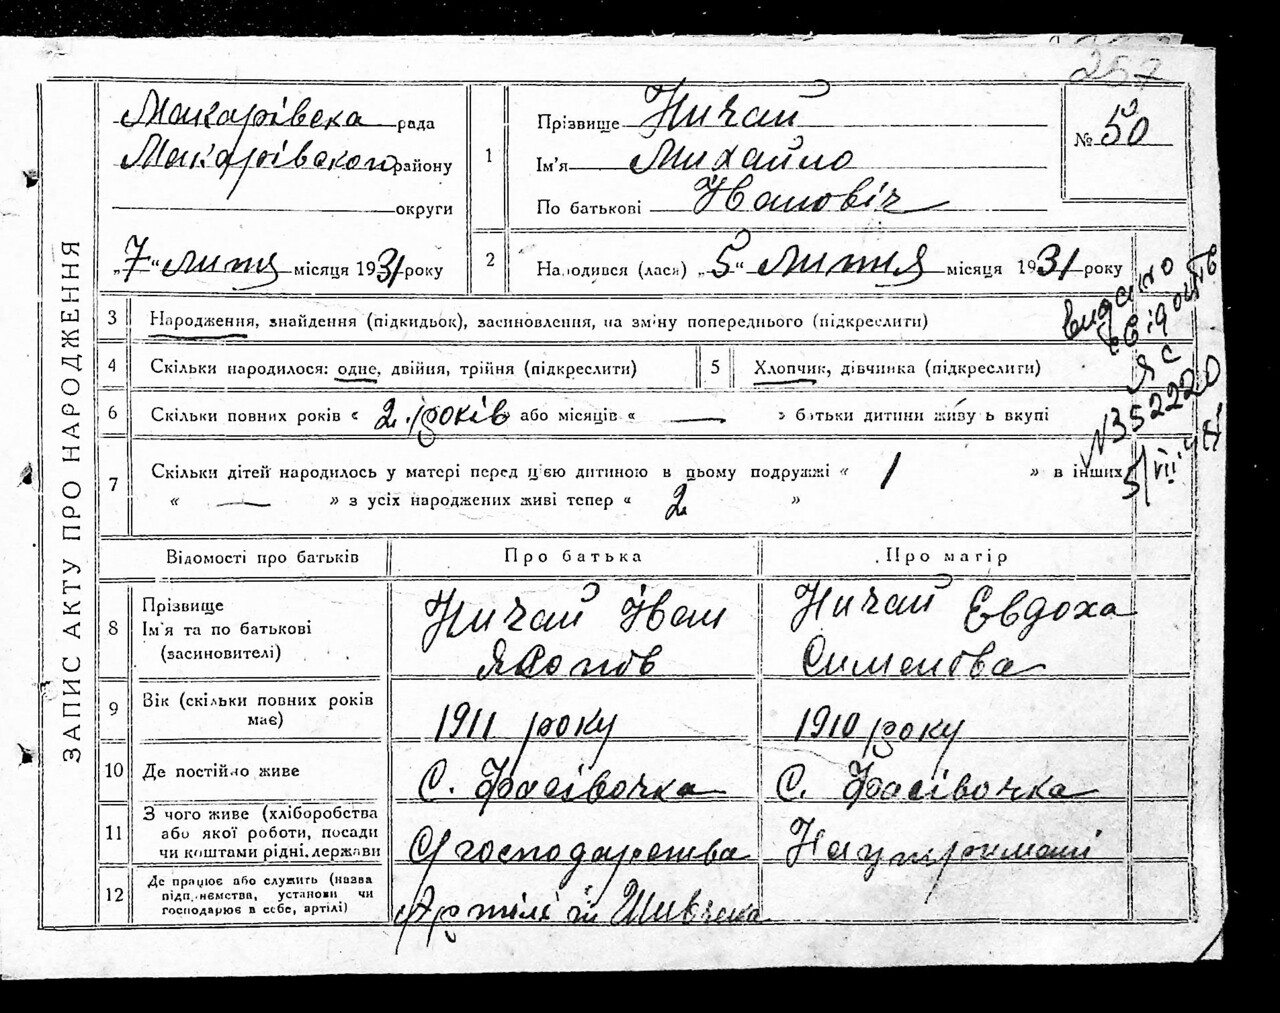 257
Макарівска рада
Макарівского району
округи
"7" липня місяця 1931 року
1
Прізвище Ничай
Ім'я Михайло
По батькові Івановіч
№ 50
2
Народився (лася) "5" липня місяця 1931 року
видано
свідоцтв
ЯС
N 352220
5/VII
ЗАПИС АКТУ ПРО НАРОДЖЕННЯ
3 Народження, знайдення (підкидьок), засиновлення, на зміну попереднього (підкреслити)
4 Скільки народилося: одне, двійня, трійня (підкреслити)
5 Хлопчик, дівчинка (підкреслити)
6 Скільки повних років « 2 років » або місяців « — » батьки дитини живуть вкупі
7 Скільки дітей народилось у матері перед цією дитиною в цьому подружжі « 1 » в інших
« — » з усіх народжених живі тепер « 2 »
Відомості про батьків Про батька Про матір
8 Прізвище
Ім'я та по батькові
(засиновителі)
Ничай Іван
Яколів
Ничай Евдоха
Сименова
9 Вік (скільки повних років
має)
1911 року
1910 року
10 Де постійно живе
С. Фасівочка
С. Фасівочка
11 З чого живе (хліборобства
або якої роботи, посади
чи коштами рідні, держави
С/господарства
На утриманi
12 Де працює або служить (назва
підприємства, установи чи
господарює в себе, артілі)
Артілі ім Шевченка